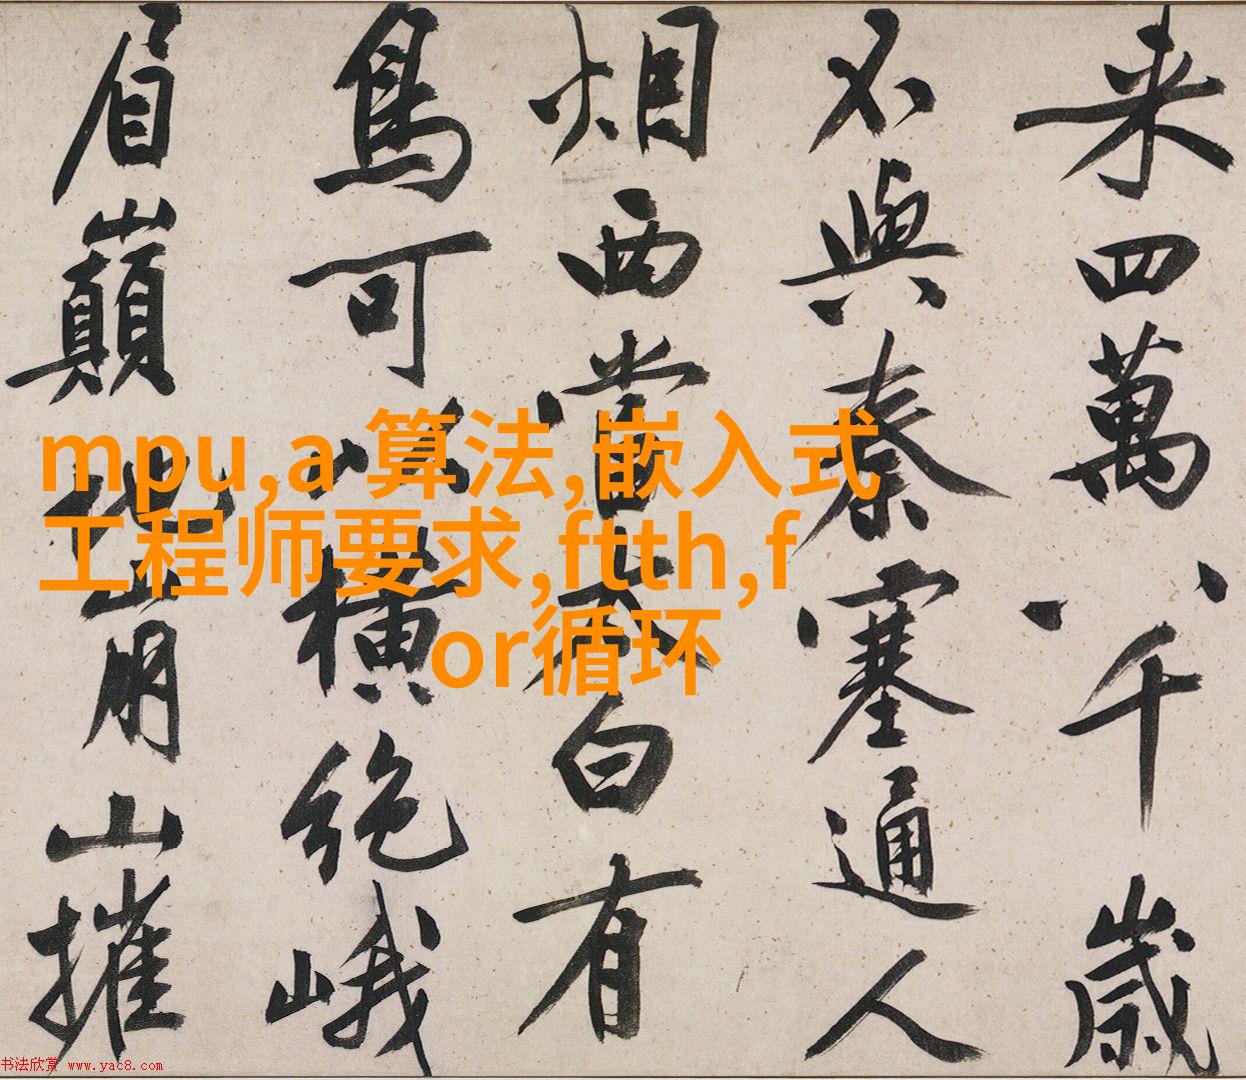 来四萬八千歲
不與秦塞通人
烟西當太白有
鳥可以橫絶峨
眉巔地崩山摧
mpu,a 算法,嵌入式
工程师要求,ftth,f
or循环
书法欣赏 www.yac8.com